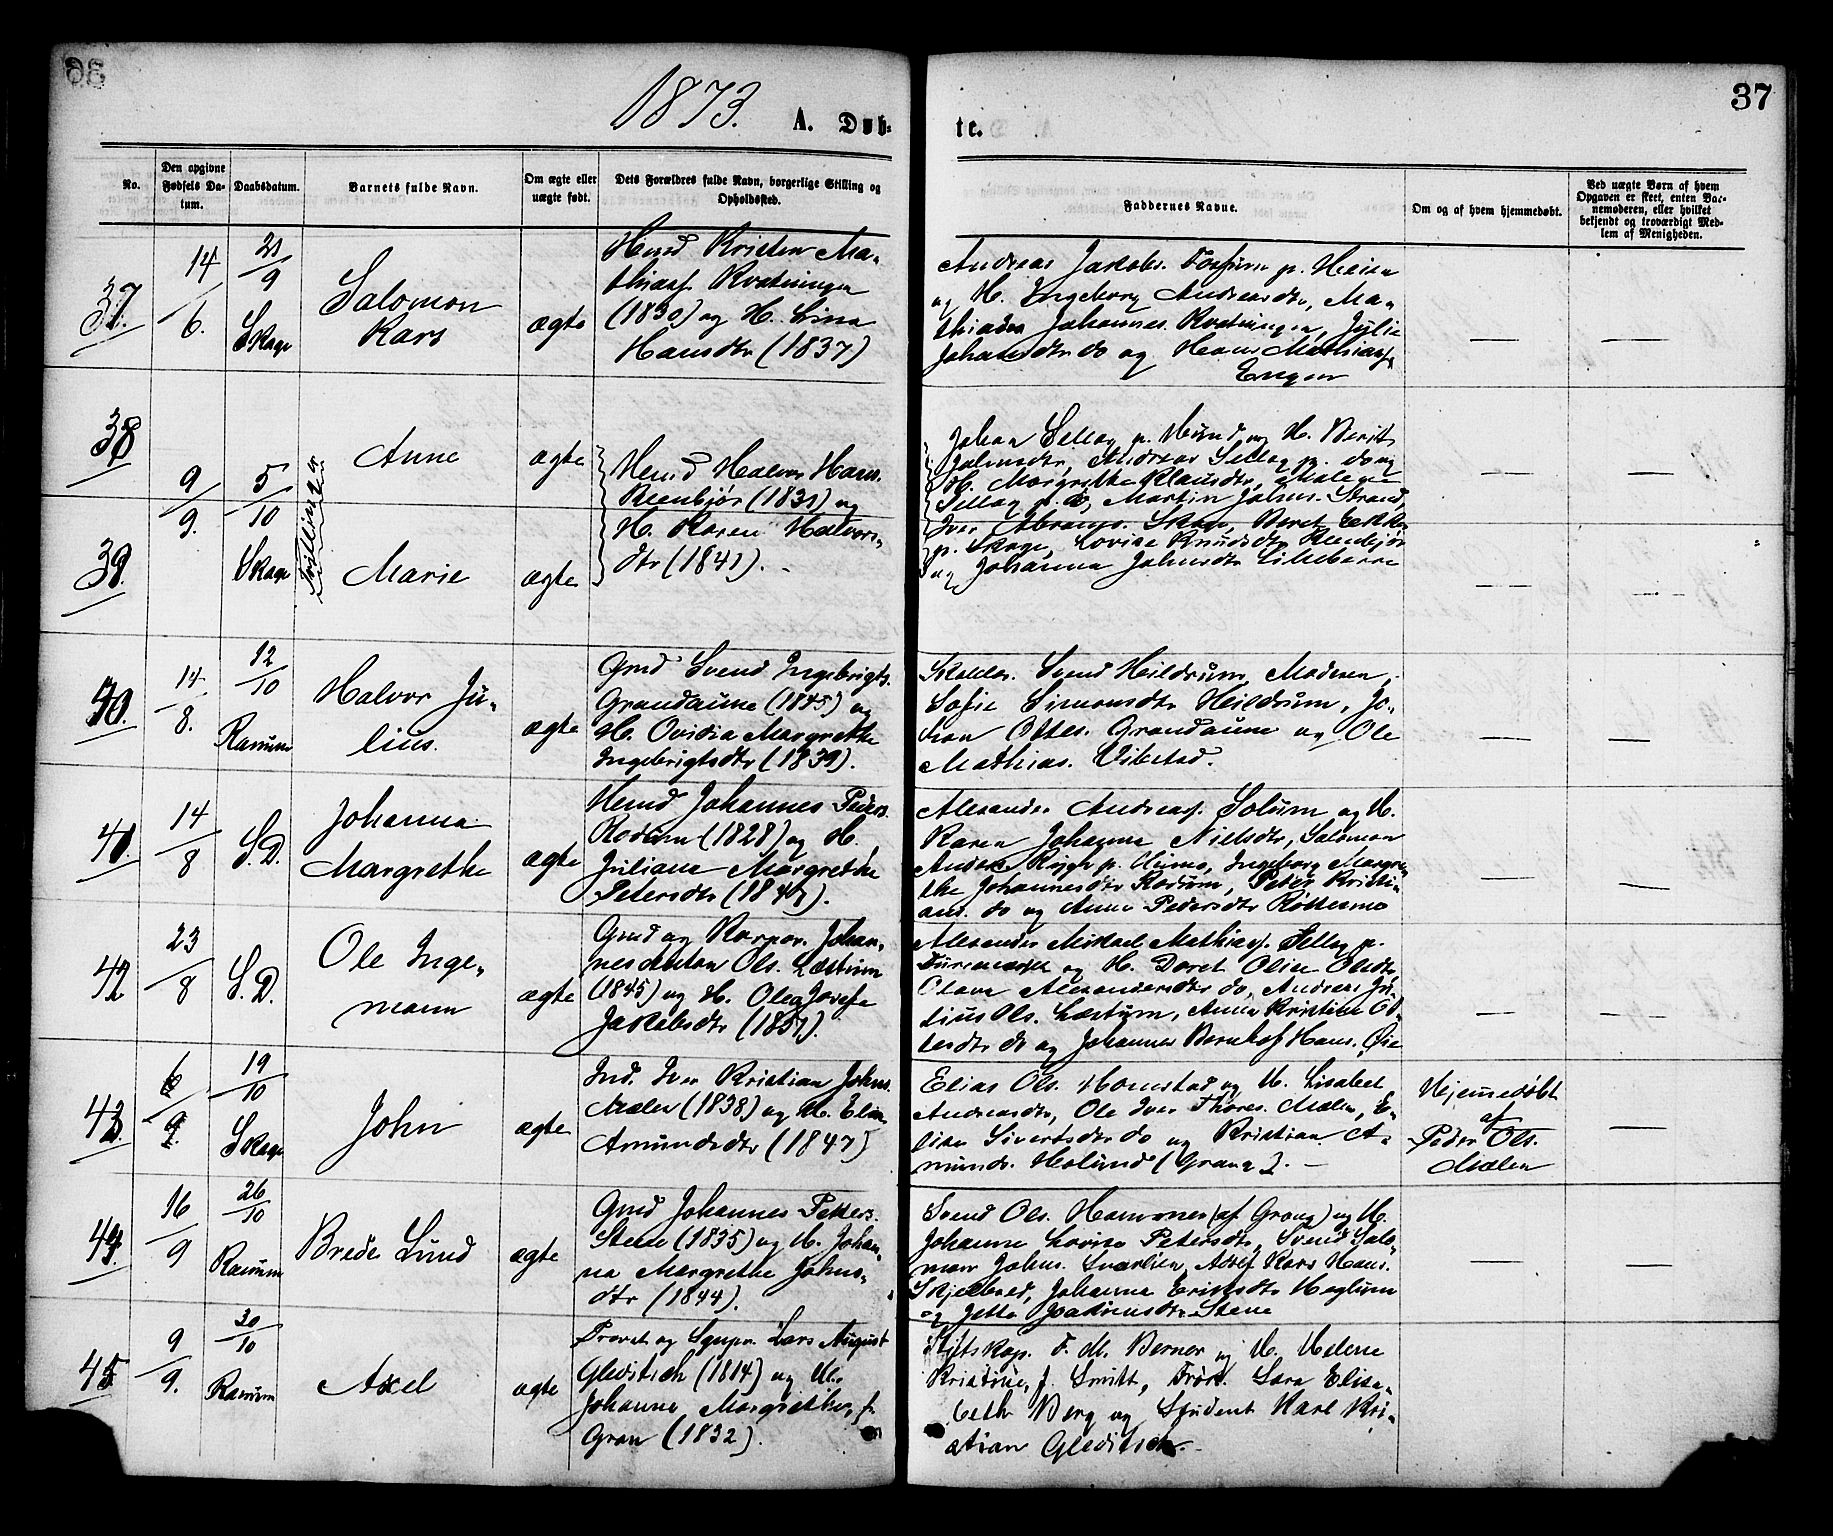 1873.
A. Døb-
te.
37
No.
Den opgivne Fødsels Da-tum.
Daabsdatum.
Barnets fulde Navn.
Om ægte eller uægte født.
Dets Forældres fulde Navn, borgerlige Stilling og Opholdssted.
Faddernes Navne.
Om og af hvem hjemmedøbt.
Ved uægte Børn af hvem Opgaven er skeet, enten Bar-nemoderen, eller hvilket bekjendt og troværdigt Med-lem af Menigheden.
37.
14/6.
21/9
Skage
Salomon
Kars
ægte
Hmd Kristen Ma-
thiass. Kvatningen
(1830) og H. Lina
Hansdtr (1837)
Andreas Jakobs. Fossum p. Heien
og H. Ingeborg Andreasdtr, Ma-
thias Johannes. Kvatningen, Julie
Johansdtr do og Hans Mathiass.
Engen
38
9/9.
5/10
Skage
Tvillinger
Anne
ægte
Hmd Halvor Hans.
Reenbjør (1831) og
H. Karen Halvors-
dtr (1841).
Johan Sellæg p. Hund og H. Berit
Johnsdtr, Andreas Sellæg p. do og
H. Margrethe Klausdtr,
Sellæg p. do, Martin Johns. Strand,
Iver Abrams. Skage, Beret
p. Skage, Lovise Knudsdtr Reenbjør
og Johanna Johnsdtr Lilleberre
39.
Marie
ægte
40.
14/8.
12/10
Ranum
Halvor Ju-
lius.
ægte
Gmd Svend Ingebrigts.
Grandaune (1845) og
H. Ovidia Margrethe
Ingebrigtsdtr (1839).
Svend Heildrum, Moderen,
Sofie Simonsdtr Heildrum, Jo-
han Ottes. Grandaune og Ole
Mathias. Vibstad.
41.
14/8
S.D.
Johanna
Margrethe
ægte
Hmd Johannes Peders.
Rodum (1828) og H.
Juliane Margrethe
Petersdtr (1841).
Alexander Andreass. Solum og H.
Karen Johanne Nielsdtr, Salomon
Andreas Rygh p. Hunno, Ingeborg Margre-
the Johannesdtr Rodum, Peter Kristi-
ans. do og Anne Pedersdtr Røttesmo
42
23/8
S.D.
Ole Inge-
mann
ægte
Gmd og Korpor. Johan-
nes Anton Ols. Læstum
(1845) og H. Olea Josefa
Jakobsdtr (1851).
Alexander Mikael Mathiass. Sellæg p.
og H. Beret Olin Olsdtr,
Olava Alexandersdtr do, Andreas Ju-
lius Ols. Læstum, Anne Kristine Ol-
lesdtr do og Johannes Bernhof Hans. Øie
43.
6/9.
19/10
Skage
John
ægte
Ind. Iver Kristian Johns.
Mælen (1838) og H. Elen
Amundsdtr (1847)
Elias Ols. Homstad og H. Lisabet
Andreasdtr, Ole Iver Thores. Mælen, E-
lise Sivertsdtr do og Kristian A-
munds. Høilund (Grong). –
Hjemmedøbt
af
Peder Ols.
Mælen
44.
16/9
26/10
Ranum
Brede Lund
ægte
Gmd Johannes Petters.
Stene (1835) og H. Johan-
na Margrethe Johns-
dtr (1844).
Svend Ols. Hammer (af Grong) og H.
Johanne Lovise Petersdtr, Svend Salo-
mon Johns. Svarlien, Adolf Kars Hans.
Skjelbred, Johanna Eriksdtr Haglum
og Jetta Joakimsdtr Stene
45
9/9.
30/10
Ranum
Axel
ægte
Provst og Sognpr. Lars August
Gleditsch (1814) og H.
Johanne Margrethe, f.
Gron (1832).
Stiftskap. F. M. Berner og H. Helene
Kristine, f. Smitt, Frøk. Sara Elisa-
beth Berg og Student Karl Kri-
stian Gleditsch.